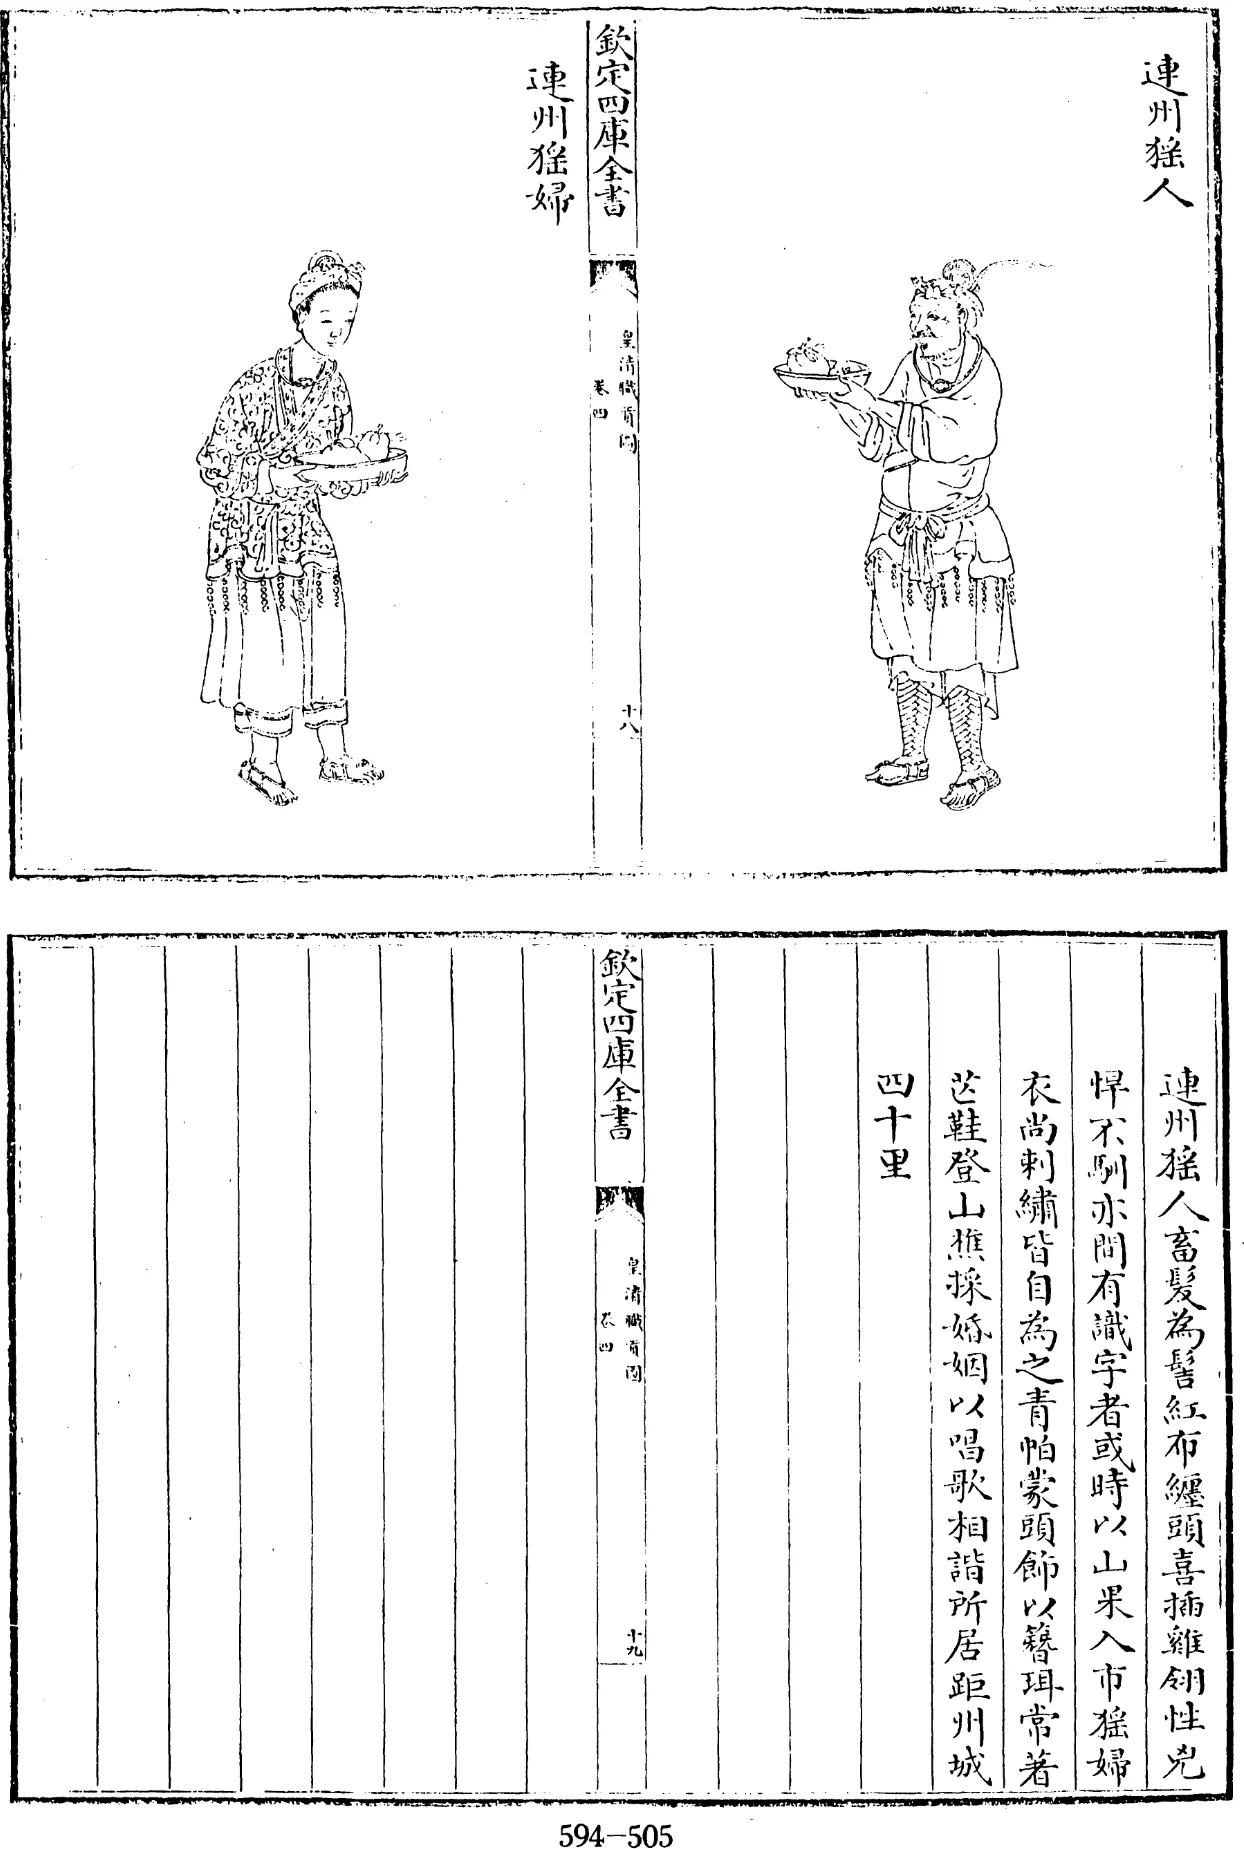 連州猺人
欽定四庫全書
皇清職貢圖
卷四
十八
連州猺婦
連州猺人畜髮為髻紅布纏頭喜插雞翎性兇
悍不馴亦間有識字者或時以山果入市猺婦
衣尚刺繡皆自為之青帕蒙頭飾以簪珥常著
芒鞋登山樵採婚姻以唱歌相諧所居距州城
四十里
欽定四庫全書
皇清職貢圖
卷四
十九
594-505